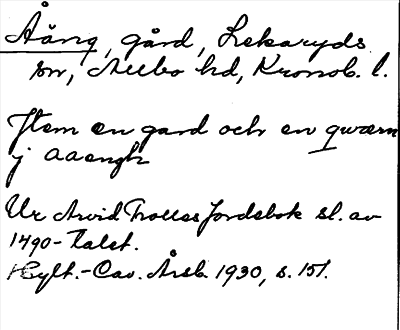 Åäng, gård, Lekaryds
sn, Allbo hd, Kronob. l.
Jtem en gard och en qwærn
j aaengh
Ur Arvid Trolles Jordebok sl. av
1490-talet.
Hylt.-Cav. Årsb. 1930, s. 151.